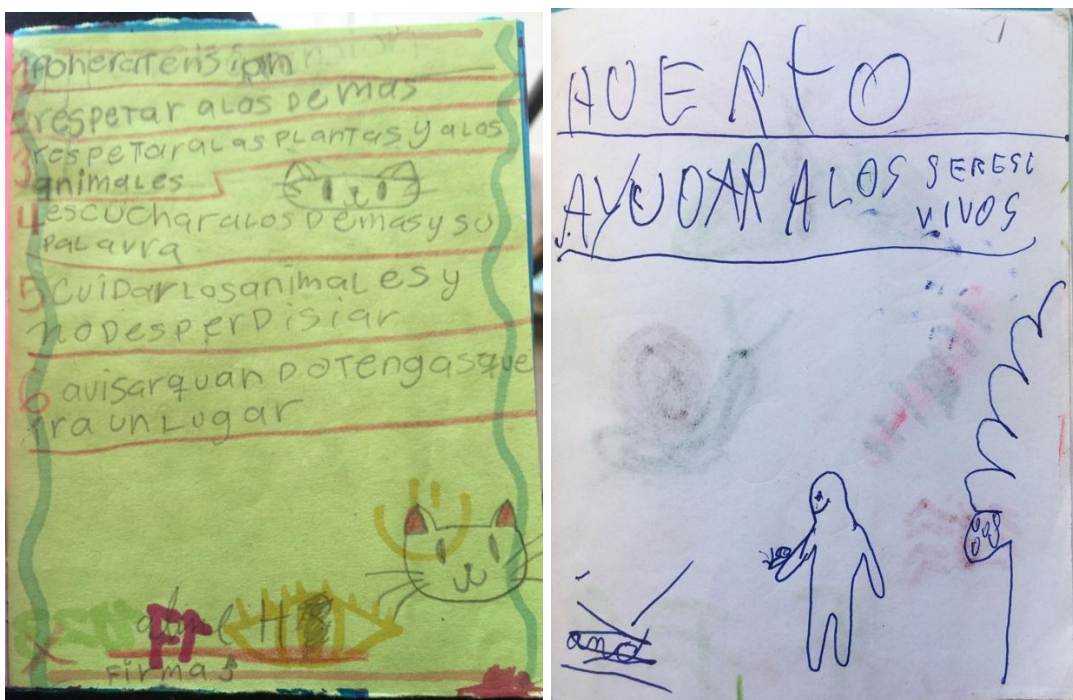 1 poneratension
2 respetar alos Demas
3 respetaralas plantas y alos
animales
4 escucharalos Demas y su
palavra
5 cuidarlosanimales y
noDesperDisiar
6 avisarquanDotengasque
ira un Lugar
Firmas
AUERTO
AYUDAR ALOS SERES
VIVOS
and